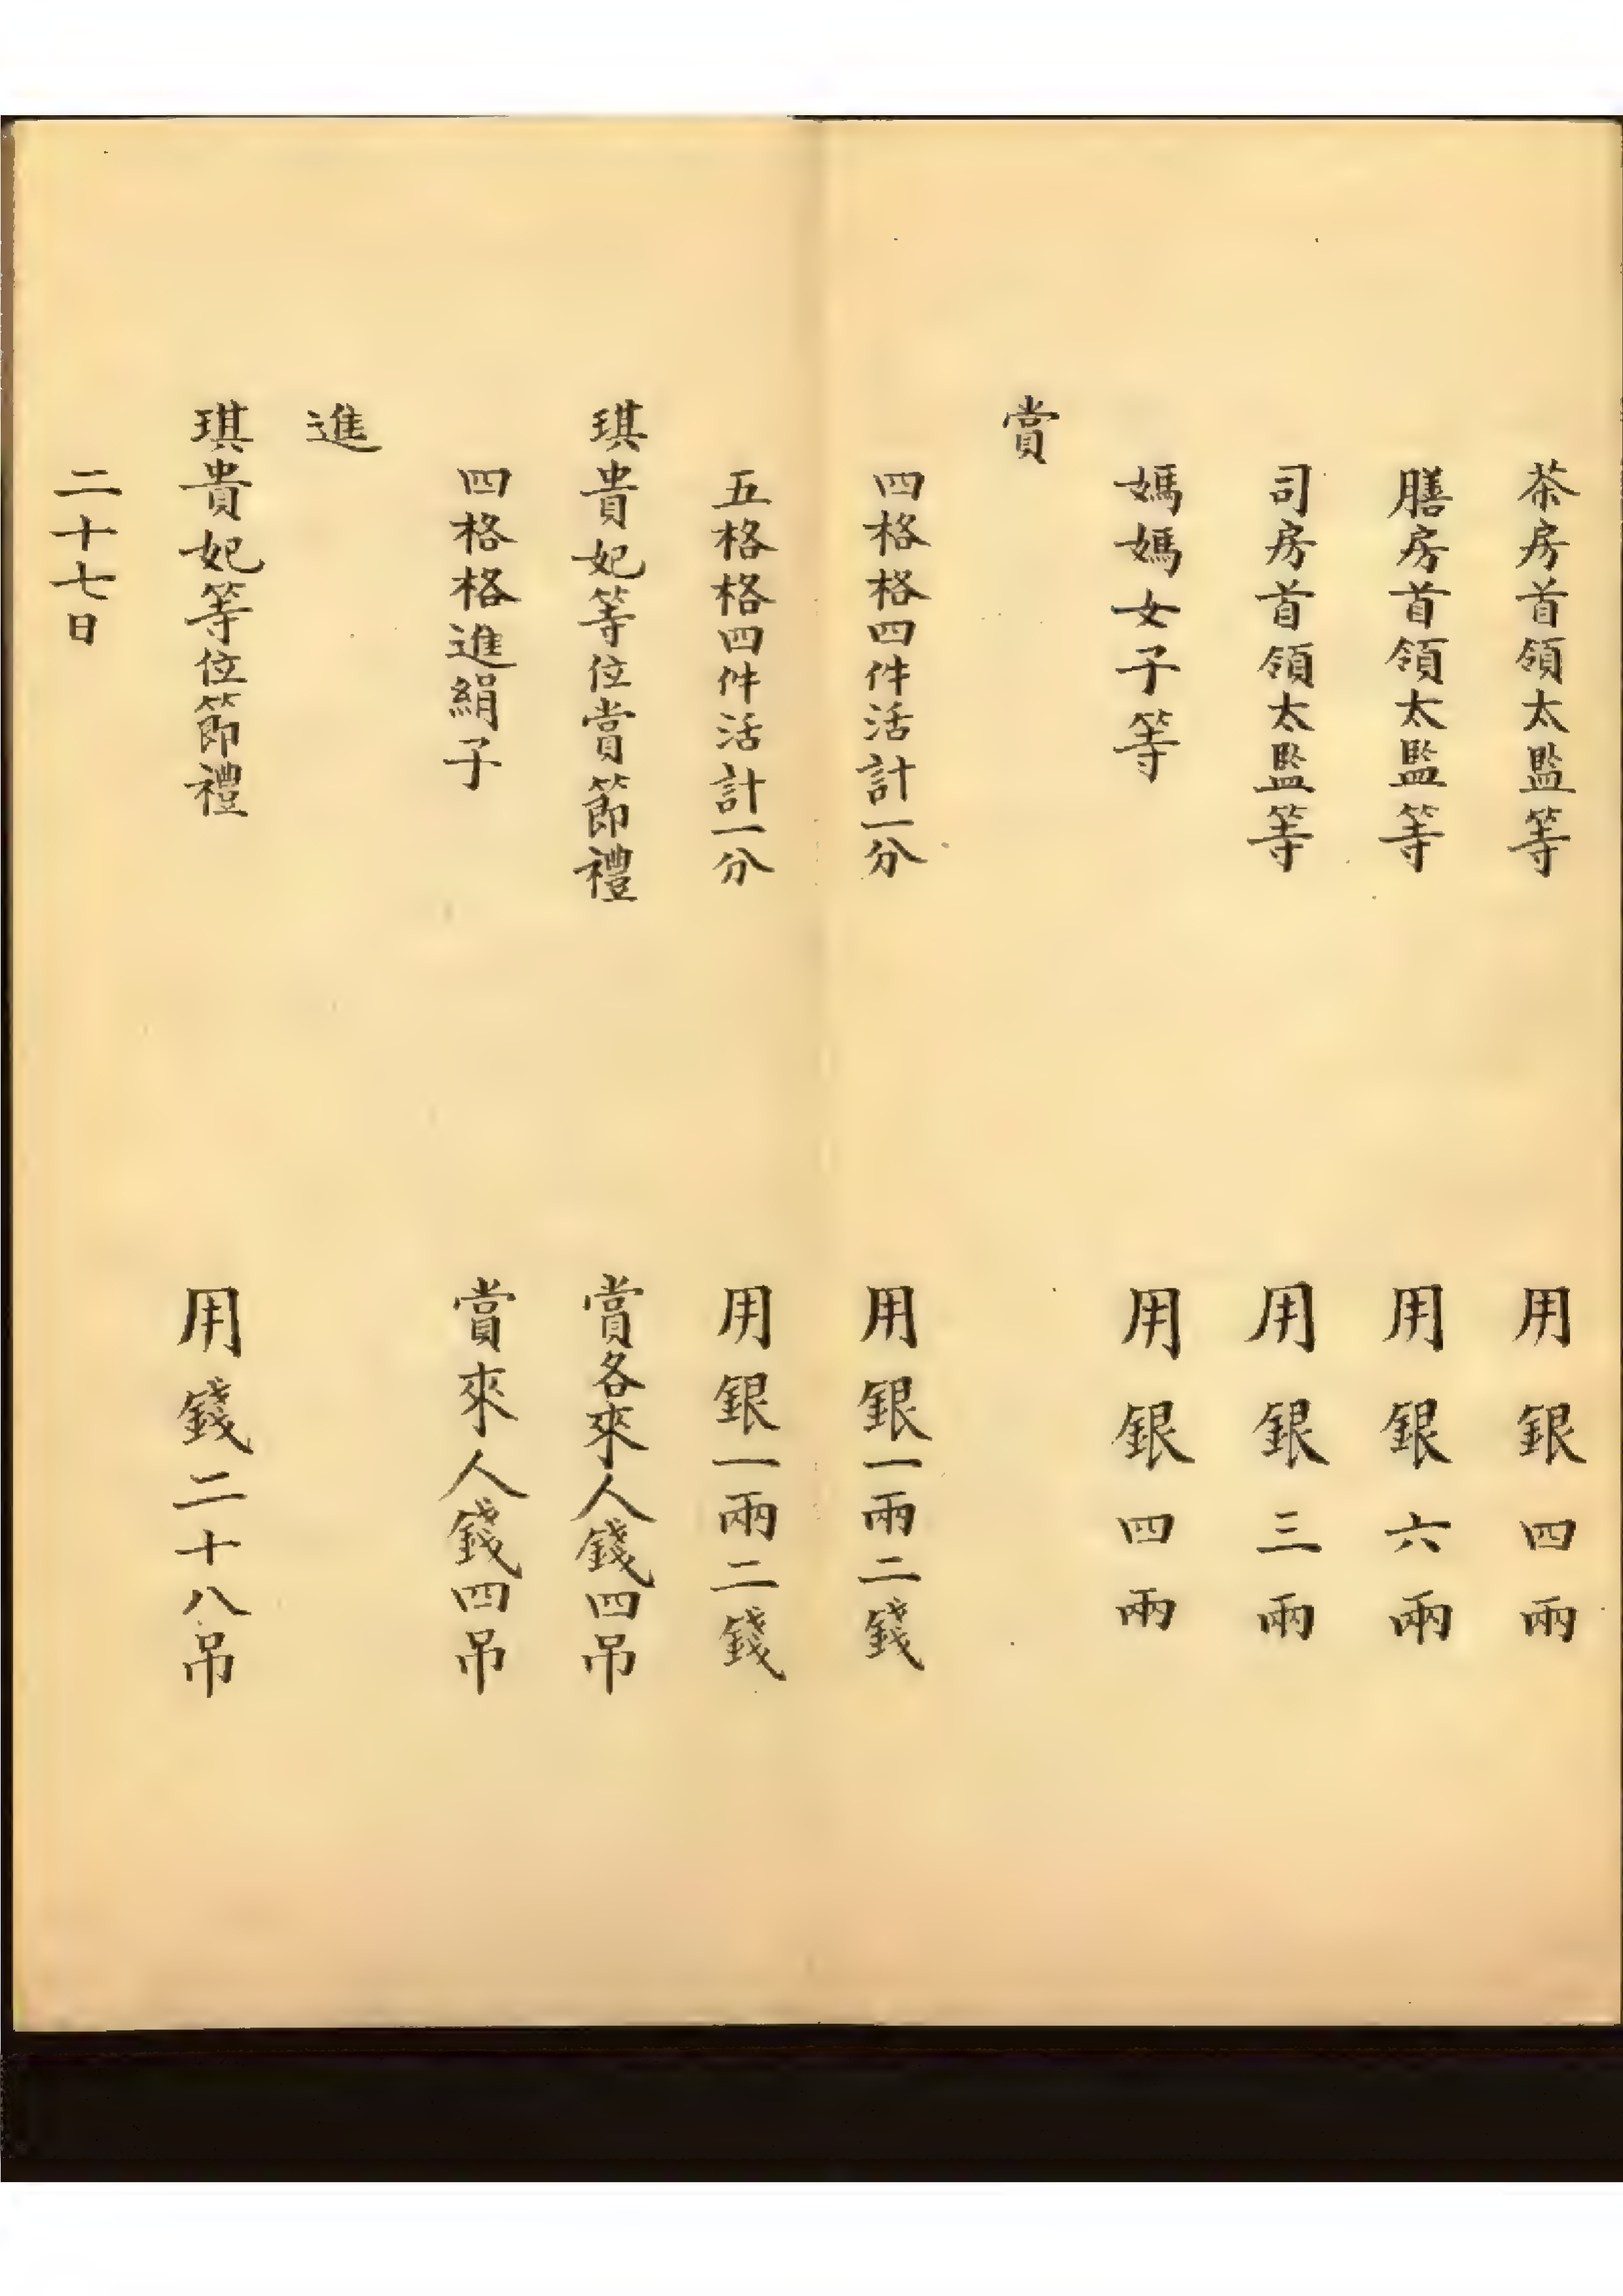 茶房首領太監等 用銀四兩
膳房首領太監等 用銀六兩
司房首領太監等 用銀三兩
媽媽女子等 用銀四兩
賞
四格格四件活計一分 用銀一兩二錢
五格格四件活計一分 用銀一兩二錢
琪貴妃等位賞節禮 賞各來人錢四吊
四格格進絹子 賞來人錢四吊
進
琪貴妃等位節禮 用錢二十八吊
二十七日